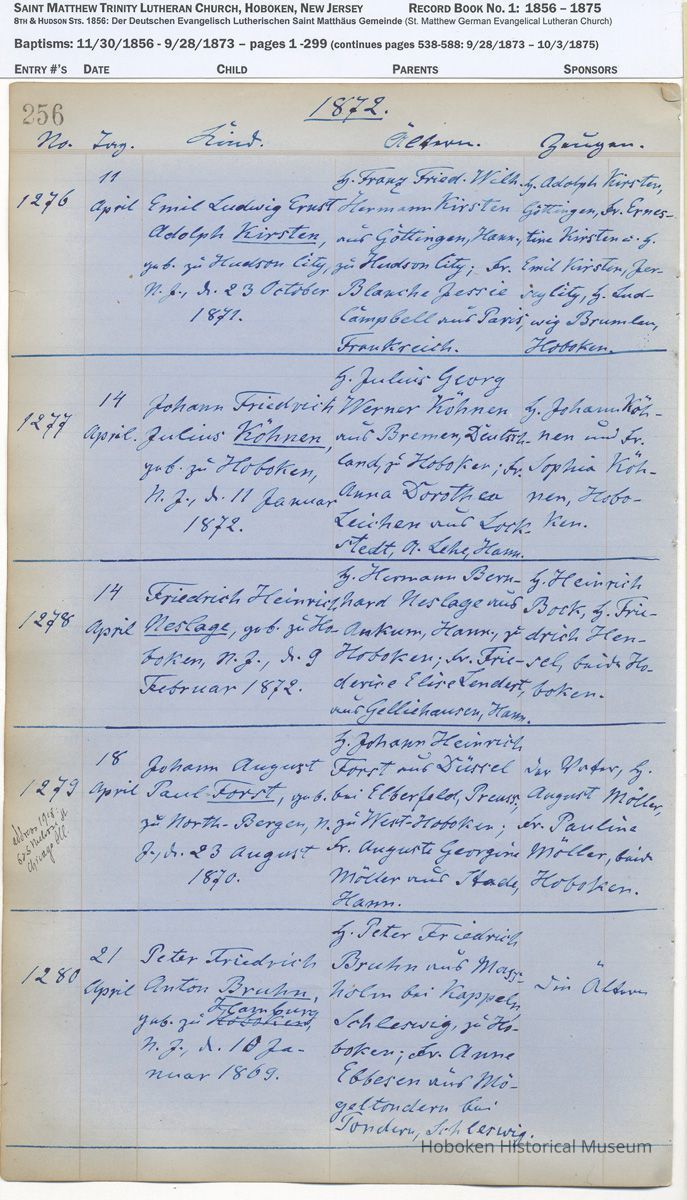 SAINT MATTHEW TRINITY LUTHERAN CHURCH, HOBOKEN, NEW JERSEY RECORD BOOK NO. 1: 1856 – 1875
8TH & HUDSON STS. 1856: Der Deutschen Evangelisch Lutherischen Saint Matthäus Gemeinde (St. Matthew German Evangelical Lutheran Church)
Baptisms: 11/30/1856 - 9/28/1873 – pages 1 -299 (continues pages 538-588: 9/28/1873 – 10/3/1875)
ENTRY #'S DATE CHILD PARENTS SPONSORS
256
1872.
No. Tag. Kind. Ältern. Zeugen.
1276
11
April
Emil Ludwig Ernst
Adolph Kirsten,
geb. zu Hudson City,
N. J., d. 23 October
1871.
H. Franz Fried. Wilh.
Hermann Kirsten
aus Göttingen, Hann.,
zu Hudson City; Fr.
Blanche Jessie
Campbell aus Paris,
Frankreich.
H. Adolph Kirsten,
Göttingen, Fr. Ernes-
tine Kirsten u. H.
Emil Kirsten, Jer-
sey City, H. Lud-
wig Brumlen,
Hoboken.
1277
14
April.
Johann Friedrich
Julius Köhnen,
geb. zu Hoboken,
N. J., d. 11 Januar
1872.
H. Julius Georg
Werner Köhnen
aus Bremen, Deutsch-
land, zu Hoboken; Fr.
Anna Dorothea
Leichen aus Lock-
stedt, A. Lehe, Hann.
H. Johann Köh-
nen und Fr.
Sophia Köh-
nen, Hobo-
ken.
1278
14
April
Friedrich Heinrich
Neslage, geb. zu Ho-
boken, N. J., d. 9
Februar 1872.
H. Hermann Bern-
hard Neslage aus
Ankum, Hann., zu
Hoboken; Fr. Frie-
derike Elise Lendert,
aus Gelliehausen, Hann.
H. Heinrich
Bock, H. Frie-
drich Hen-
sel, beide Ho-
boken.
1279
address 1918
Chicago Ill.
18
April
Johann August
Paul Forst, geb.
zu North-Bergen, N.
J., d. 23 August
1870.
H. Johann Heinrich
Forst aus Düssel
bei Elberfeld, Preuss.,
zu West-Hoboken;
Fr. Auguste Georgine
Möller aus Stade,
Hann.
der Vater, H.
August Möller,
Fr. Pauline
Möller, beide
Hoboken.
1280
21
April
Peter Friedrich
Anton Bruhn,
Hamburg
geb. zu Hoboken,
N. J., d. 10 Ja-
nuar 1869.
H. Peter Friedrich
Bruhn aus Mass-
holm bei Kappeln
Schleswig, zu Ho-
boken; Fr. Anne
Ebbesen aus Mö-
geltondern bei
Tondern, Schleswig.
Die Ältern
Hoboken Historical Museum